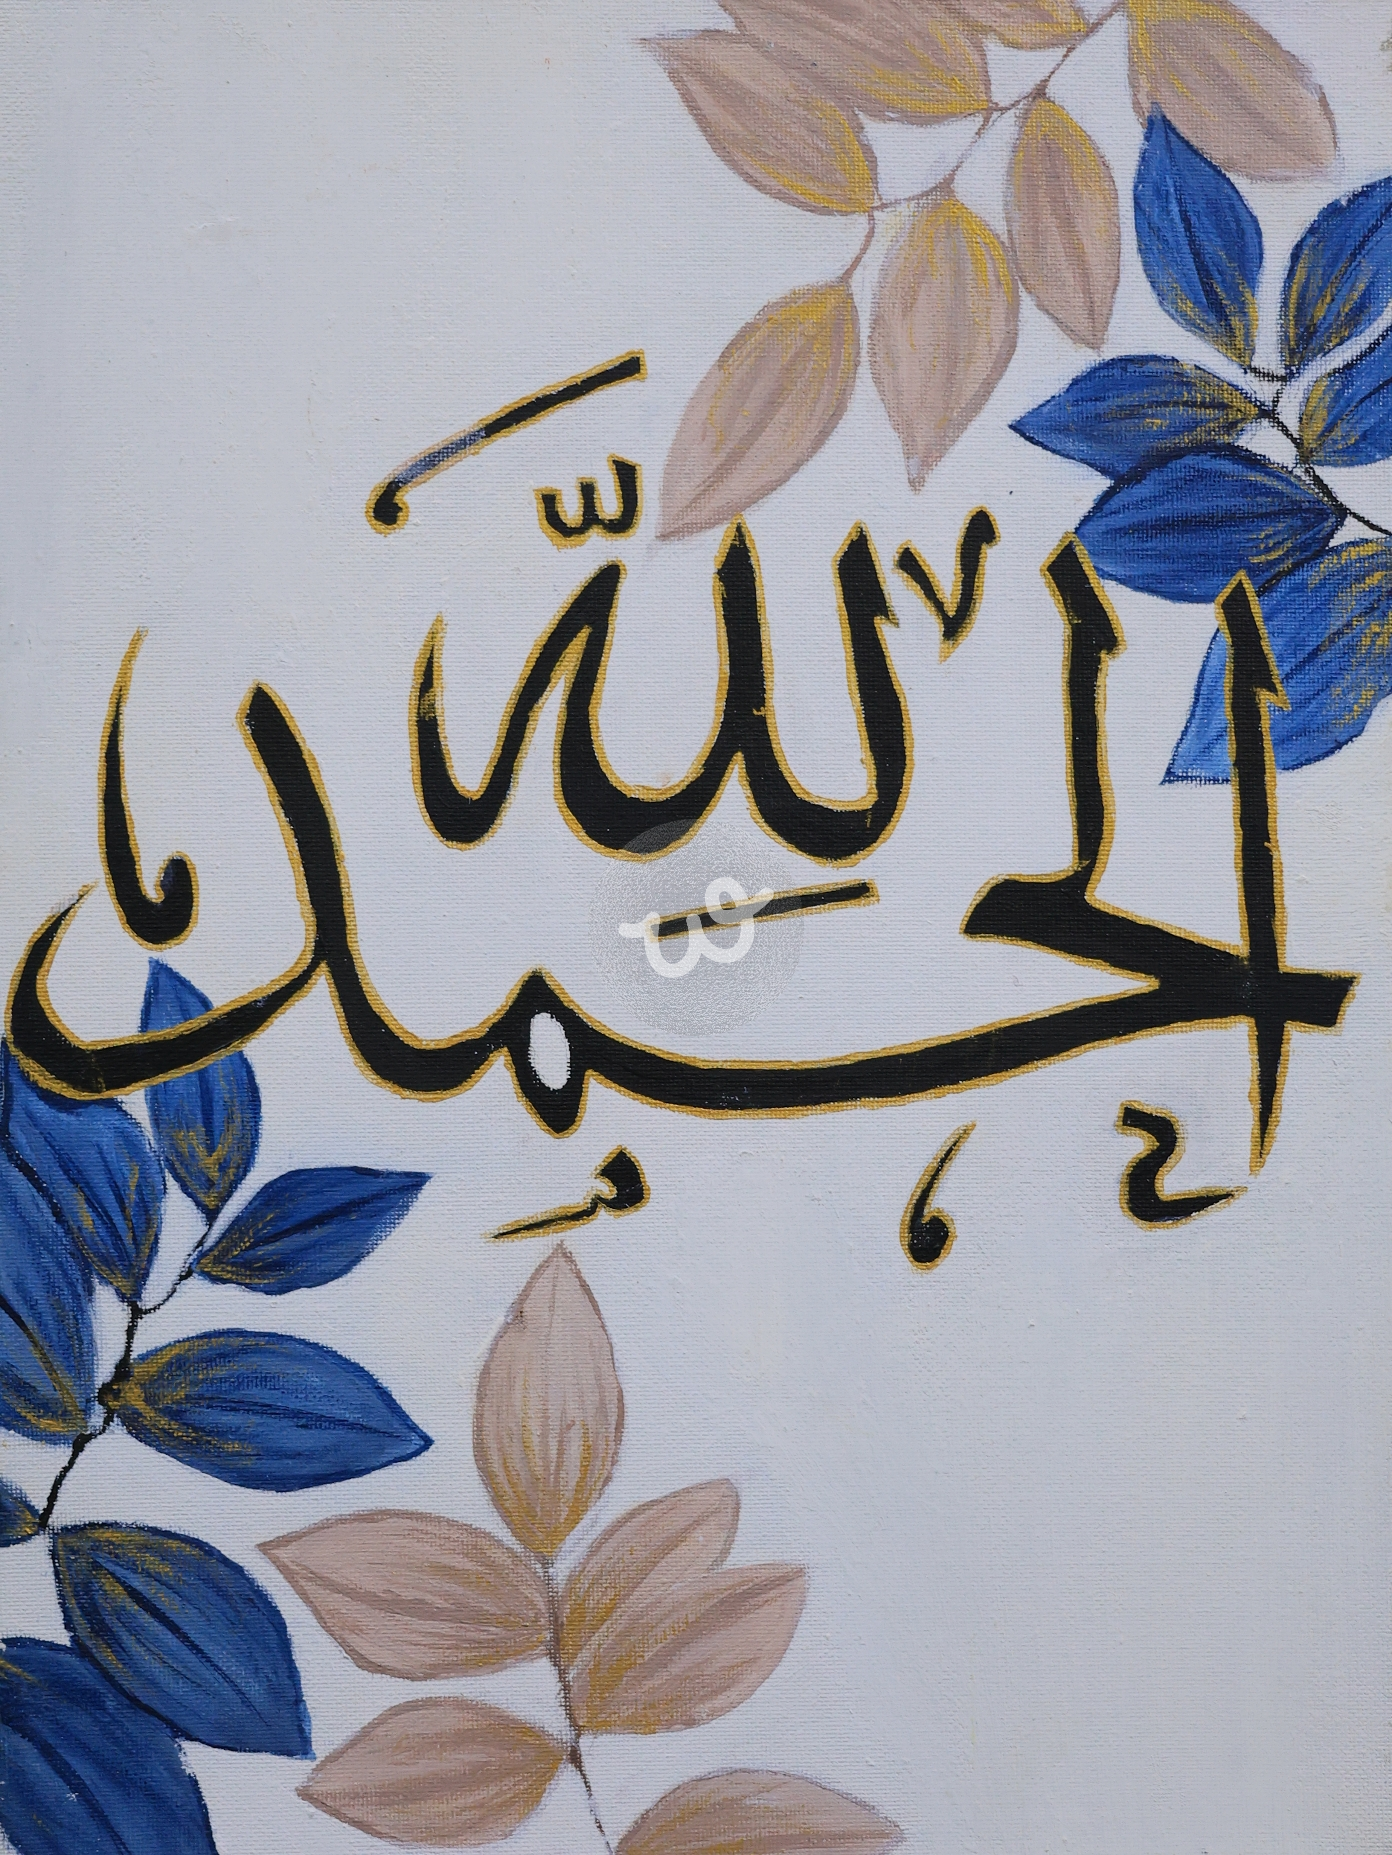 الحمد لله
wo